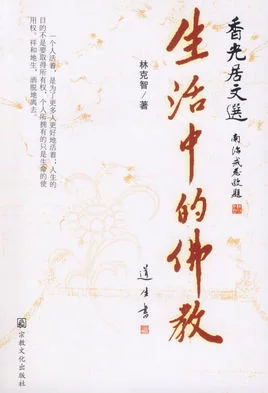 香光居文选
林克智／著
生活中的佛教
道生书
一个人活着，是为了更多人更好地活着；人生的
目的不是要取得所有权，个人所拥有的只是生命的使
用权。祥和地生，洒脱地离去
宗教文化出版社